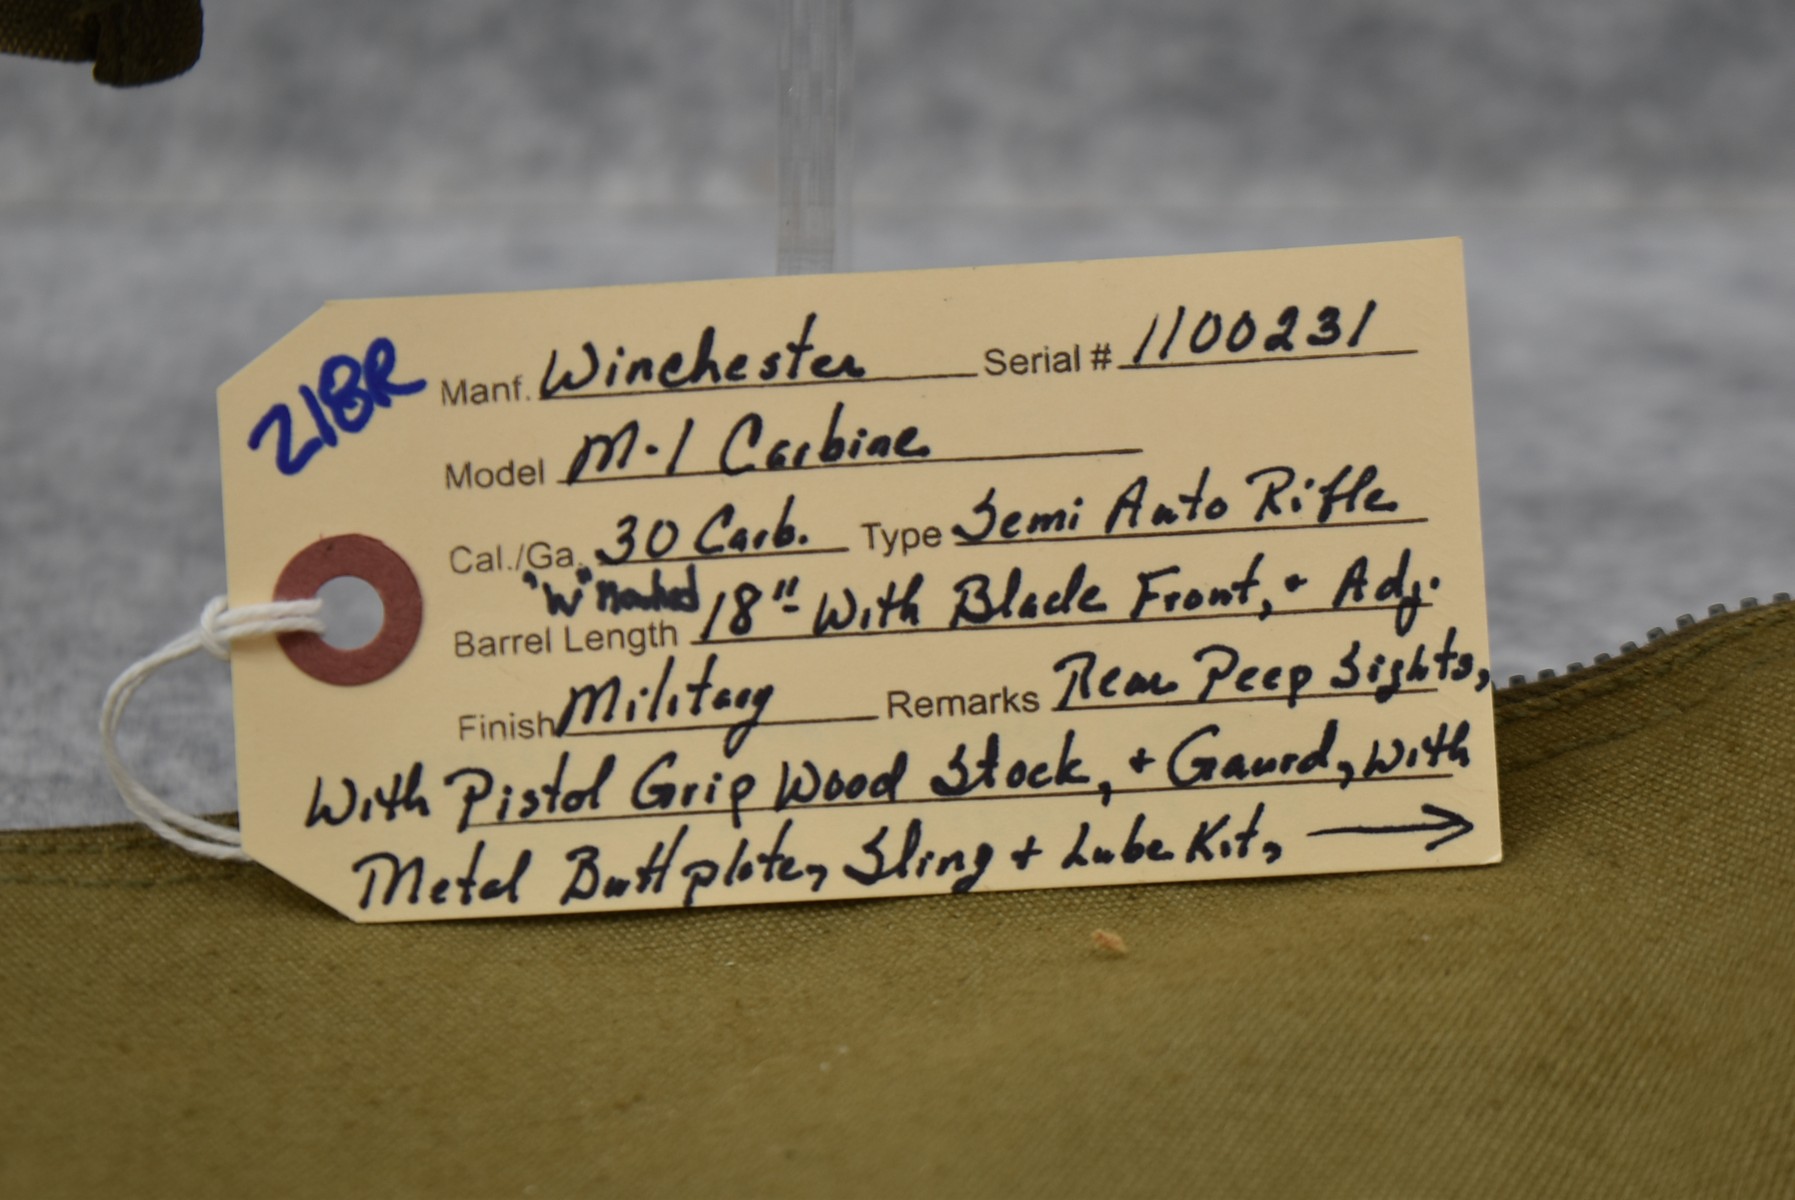 218R
Manf. Winchester Serial # 1100231
Model M-1 Carbine
Cal./Ga. 30 Carb. Type Semi Auto Rifle
"W" Marked
Barrel Length 18" With Blade Front, + Adj.
Finish Military Remarks Rear Peep Sights,
With Pistol Grip Wood Stock, + Gaurd, With
Metal Buttplate, Sling + Lube Kit, →